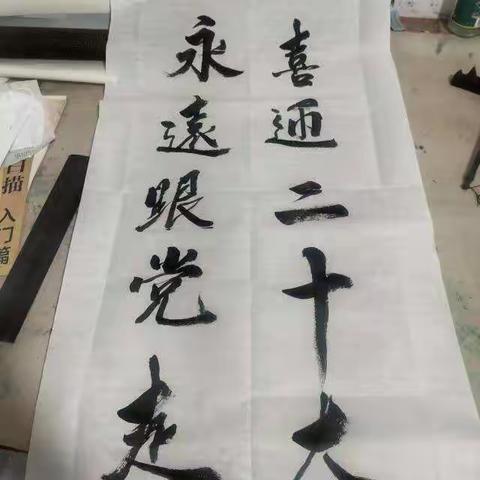 喜迎二十大
永遠跟党走
白描
入门篇